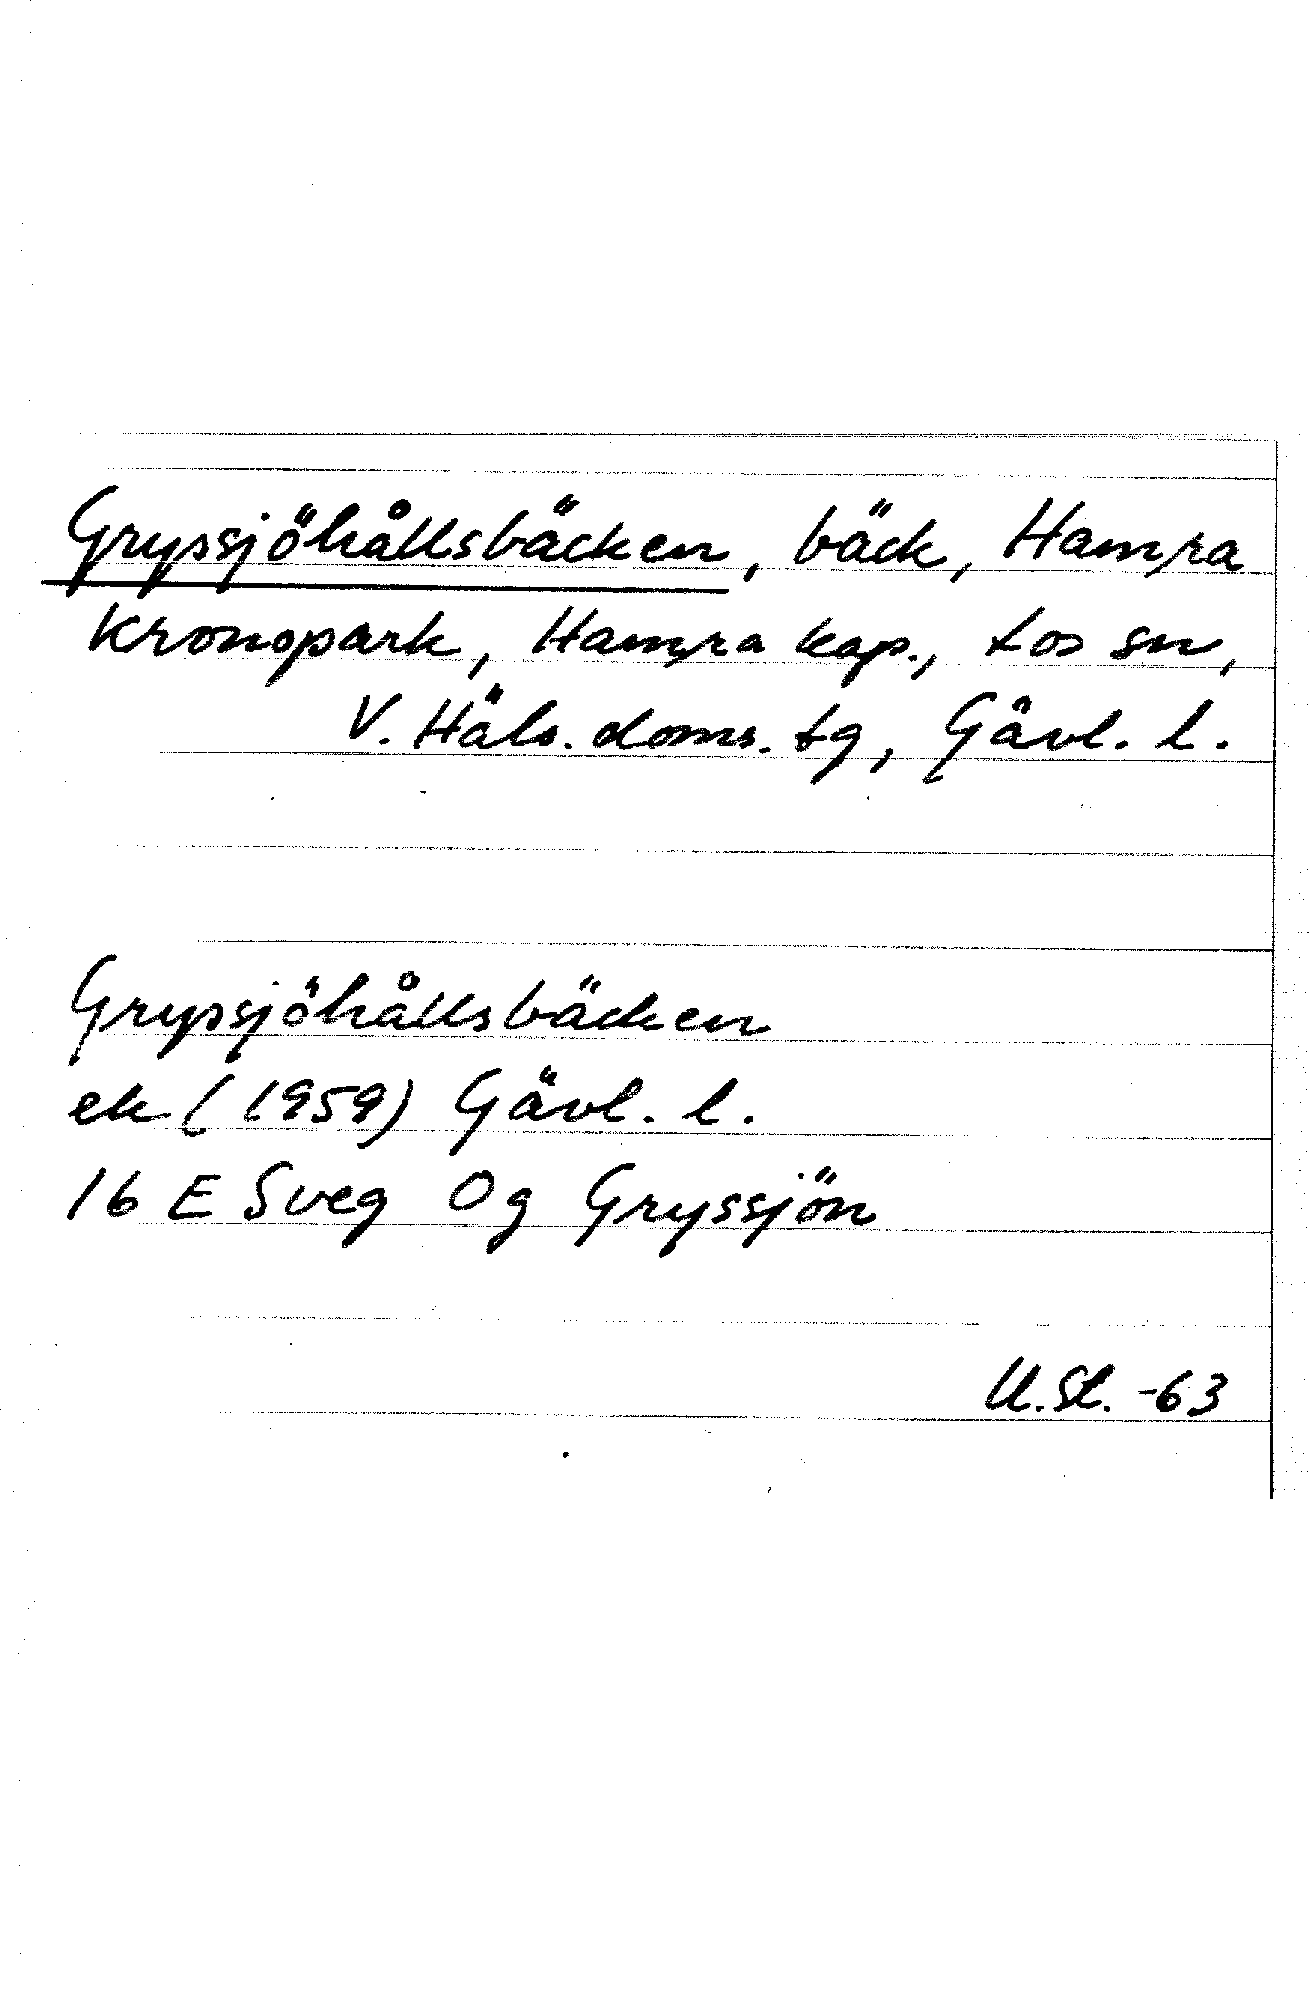 Gryssjöhållsbäcken, bäck, Hamra
Kronopark, Hamra kap., Los sn,
V. Häls. doms. tg, Gävl. l.
Gryssjöhållsbäcken
ek (1959) Gävl. l.
16 E Sveg Og Gryssjön
U.Sl. -63